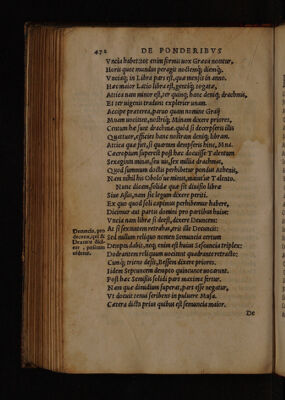 472 DE PONDERIBVS
Vncia habet: tot enim formis uox Græca notatur,
Horis quot mundus peragit noctemq́; diemq́;.
Vnciaq́; in Libra pars est, quæ mensis in anno.
Hæc maior Latio libra est, gentiq́; togatæ,
Attica nam minor est, ter quinq; hanc deniq; drachmis,
Et ter uigenis tradunt explerier unam.
Accipe præterea, paruo quam nomine Graij
Mnam uocitant, nostriq́; Minam dixere priores.
Centum hæ sunt drachmæ. quòd si decerpseris illis
Quattuor, efficies hanc nostram deniq; libram.
Attica quæ fiet, si quartam dempseris hinc, Mna.
Cecropium superest post hæc docuisse Talentum
Sexaginta minas, seu uis, sex millia drachmas,
Quod summum doctis perhibetur pondus Athenis,
Nam nihil his Obolo ue minus, maius ue Talento.
Nunc dicam, solidæ quæ sit diuisio libræ
Siue Assis, nam sic legum dixere periti.
Ex quo quod soli capimus perhibemur habere,
Dicimur aut partis domini pro partibus huius:
Vncia nam libræ si deest, dixere Deuncem:
At si sextantem retrahas, erit ille Decuncis:
Sed nullum reliquo nomen Semuncia certum
Dempta dabit, neq; enim est huius Sescuncia triplex:
Dodrantem reliquum uocitant quadrante retracto:
Cumq́; triens deest, Bessem dixere priores.
Iidem Septuncem dempto quincunce uocarunt.
Post hæc Semissis solidi pars maxima fertur.
Nam quæ dimidium superat, pars esse negatur,
Vt docuit tenui scribens in puluere Musa.
Cætera dicta prius quibus est semuncia maior.
De